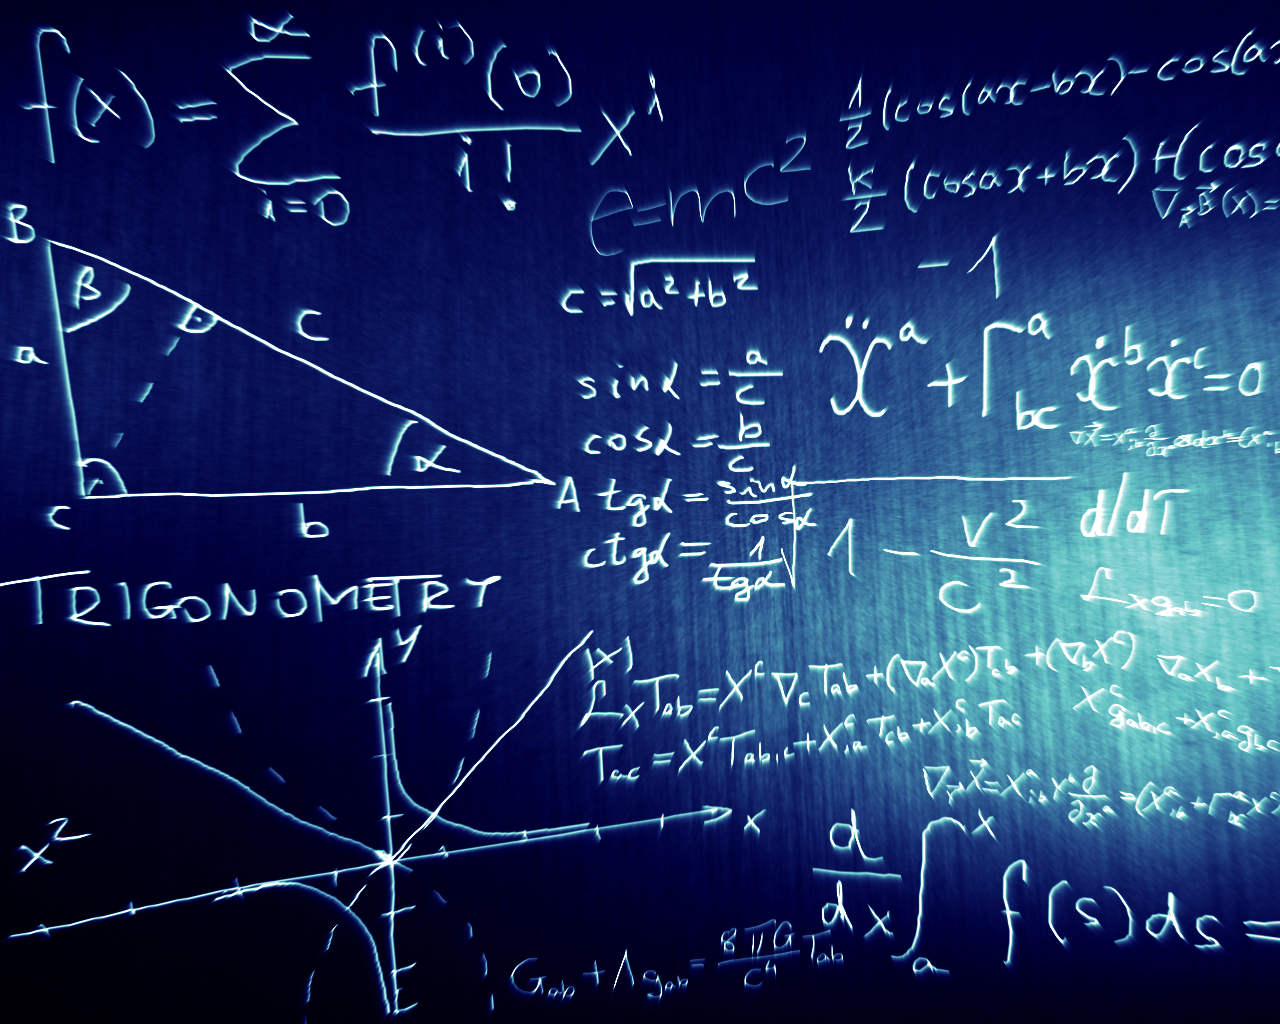 f(x) = ∑ i=0 ∝ f⁽ⁱ⁾(0) / i! xⁱ
e=mc²
½ (cos(ax-bx) - cos(ax
k/2 (cosax+bx) H(cos
∇_A B⃗(x)=
-1
B
β
a
c
α
C
b
A
c = √a²+b²
sinα = a/c
cosα = b/c
tgα = sinα/cosα
ctgα = 1/tgα
ẍᵃ + Γᵃbc ẋᵇẋᶜ=0
√1 - v²/c²
d/dT
ℒxgab=0
TRIGONOMETRY
y
|x|
x²
x
ℒxTab = Xᶜ∇cTab + (∇aXᶜ)Tcb + (∇bXᶜ)
Tac = XᶜTab,c + Xᶜ,aTcb + Xᶜ,bTac
∇aXb +
Xᶜgab,c + Xᶜ,agbc
d/dx ∫ₐˣ f(s)ds =
Gab + Λgab = 8πG/c⁴ Tab